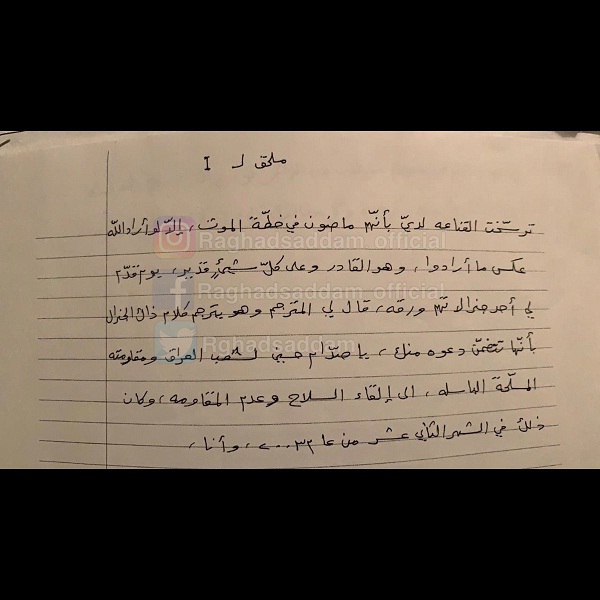 ملحق لـ I
ترسّخت القناعه لديّ بأنّهم ماضون في خطّة الموت، إلّا لو أراد الله
عكس ما أرادوا، وهو القادر وعلى كلّ شيئ قدير، يوم قدّم
لي أحد جنرالاتهم ورقه، قال لي المترجم وهو يترجم كلام ذلك الجنرال
بأنّها تتضمّن دعوه منك، يا صدّام حسين لشعب العراق ومقاومته
المسلّحة الباسله، الى إلقاء السلاح وعدم المقاومه، وكان
ذلك في الشهر الثاني عشر من عام ٢٠٠٣، وأنا،
Raghadsaddam_official
Raghadsaddam_official
Raghadsaddam_official